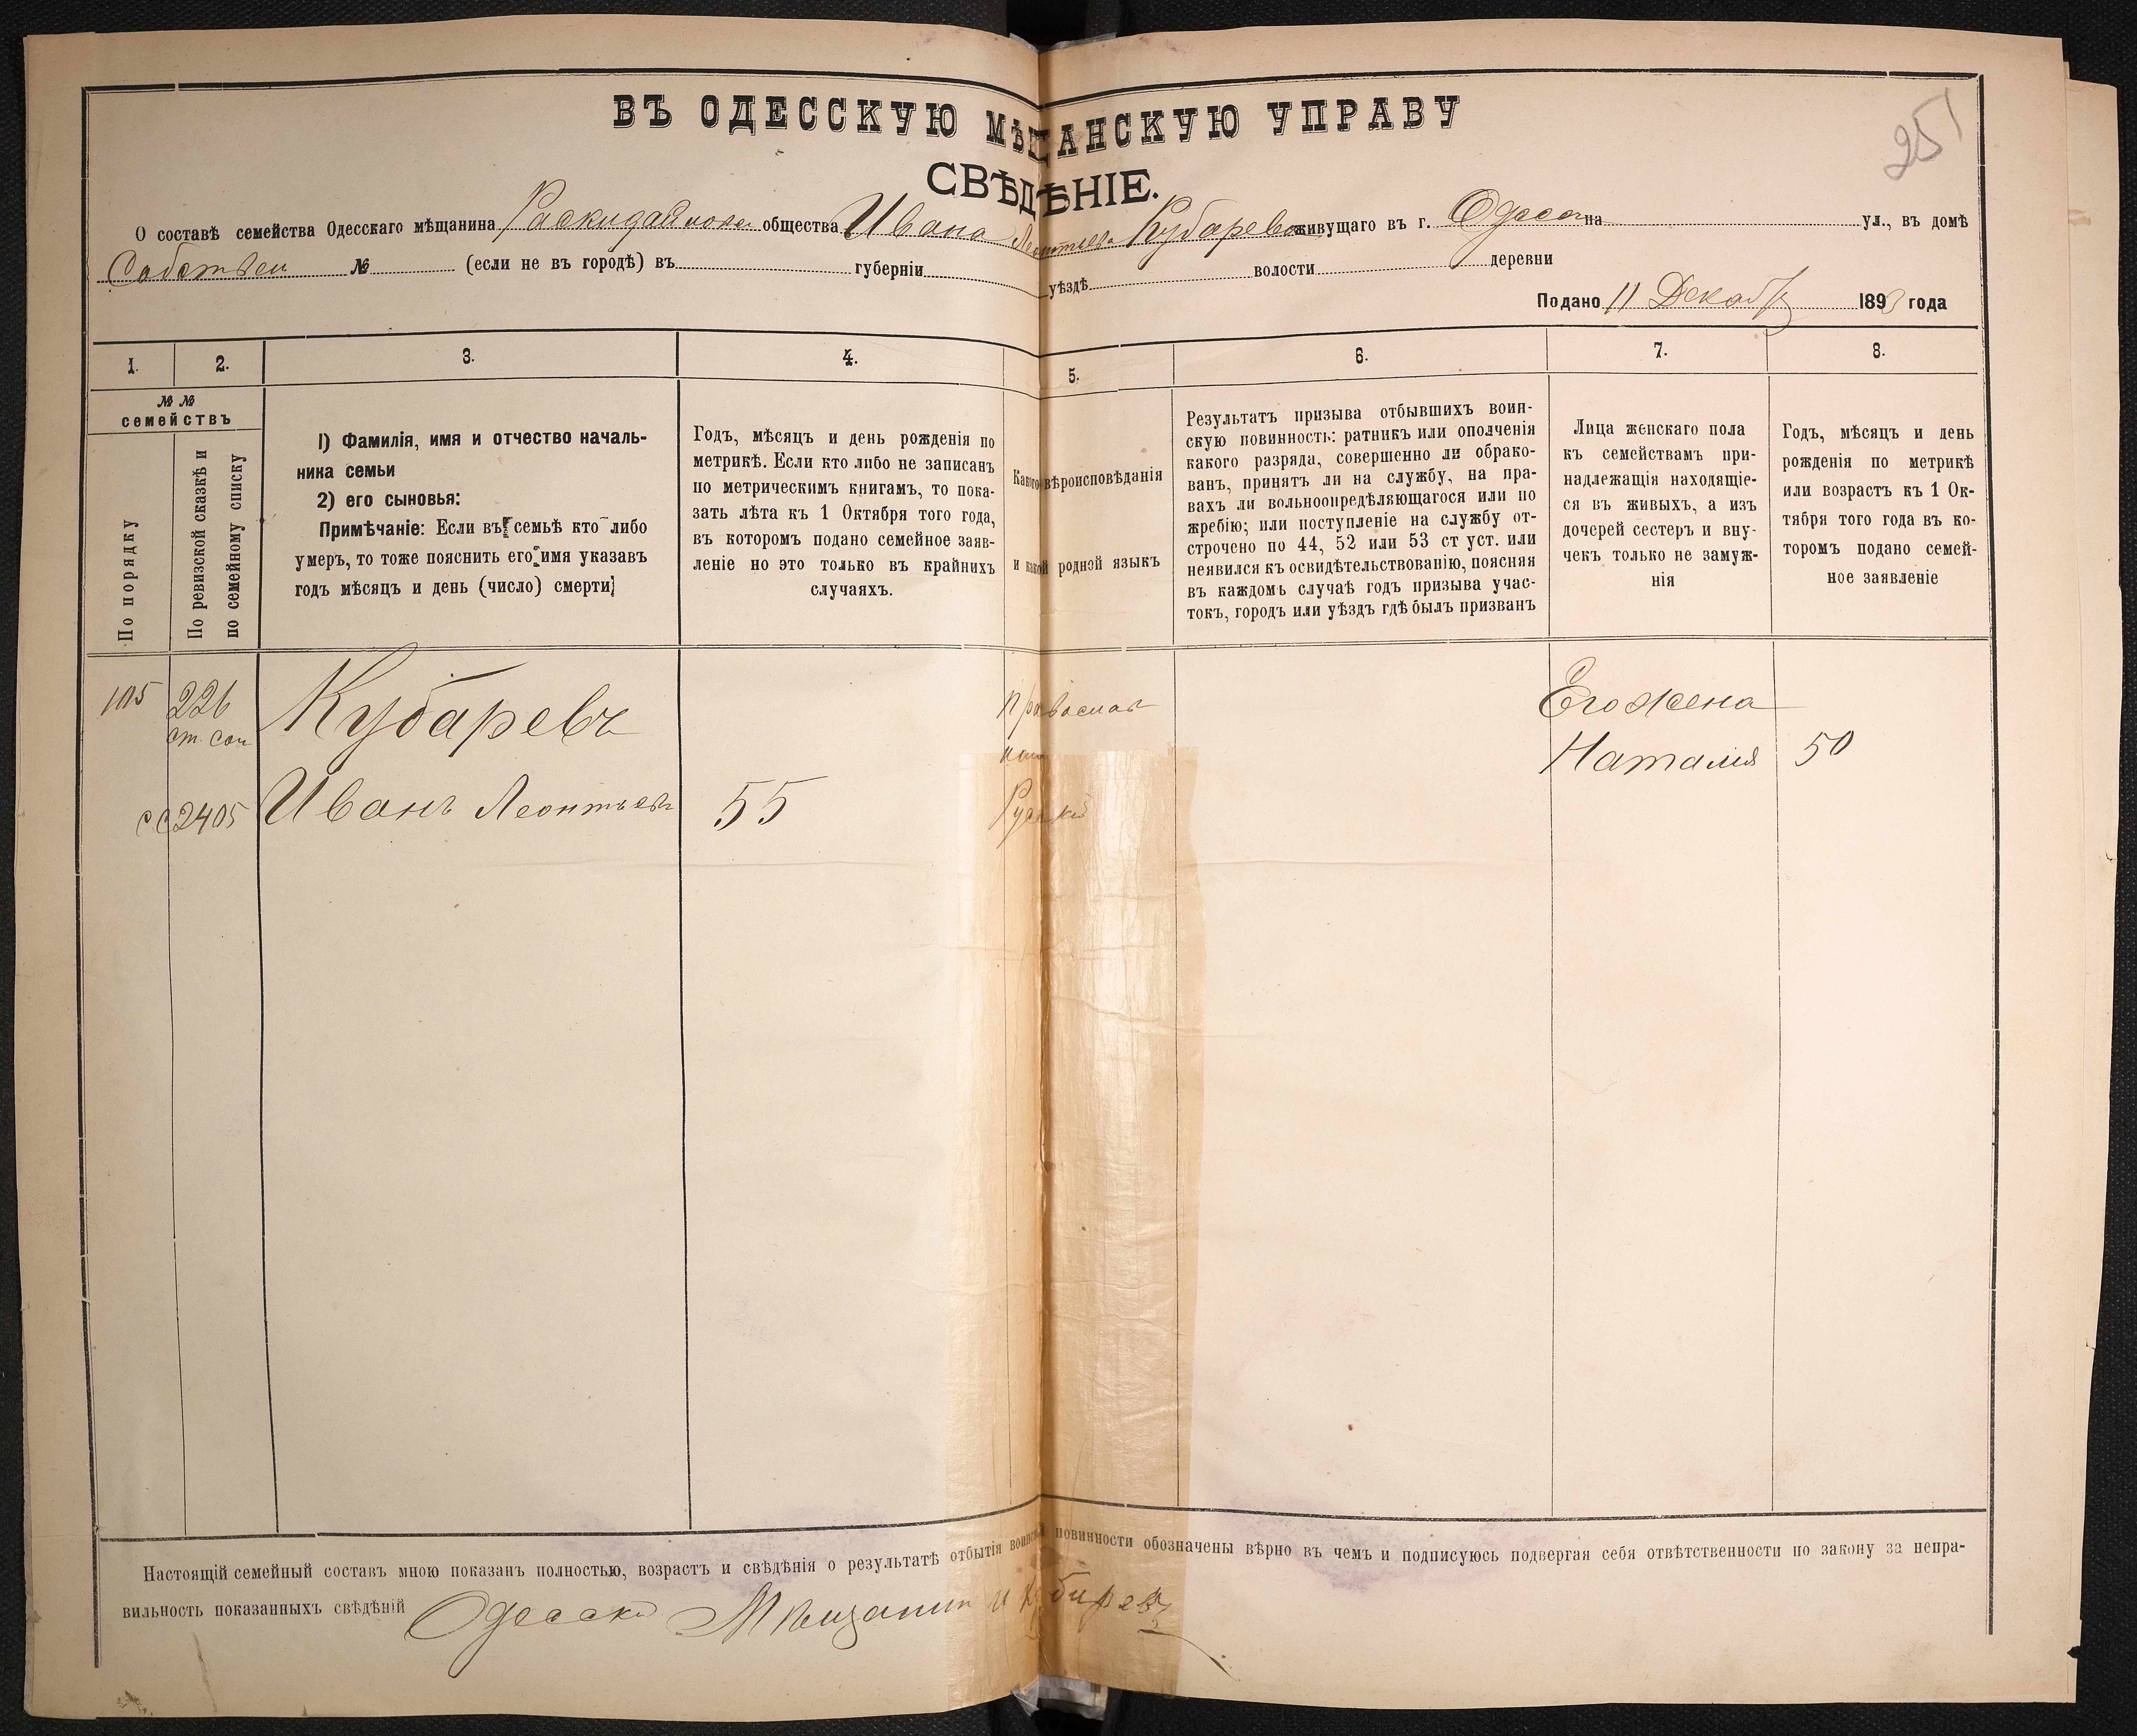 251
ВЪ ОДЕССКУЮ МѢЩАНСКУЮ УПРАВУ
СВѢДѢНІЕ.
О составѣ семейства Одесскаго мѣщанина общества Ивана Леонтьева Кубарева живущаго въ г. Одесса на ул., въ домѣ
Собствен № (если не въ городѣ) въ губерніи уѣздѣ волости деревни
Подано 11 Декаб 189 года
1.
2.
3.
4.
5.
6.
7.
8.
№ №
семействъ
По порядку
По ревизской сказкѣ и
по семейному списку
1) Фамилія, имя и отчество началь-
ника семьи
2) его сыновья:
Примѣчаніе: Если въ семьѣ кто либо
умеръ, то тоже пояснить его имя указавъ
годъ мѣсяцъ и день (число) смерти
Годъ, мѣсяцъ и день рожденія по
метрикѣ. Если кто либо не записанъ
по метрическимъ книгамъ, то пока-
зать лѣта къ 1 Октября того года,
въ которомъ подано семейное заяв-
леніе но это только въ крайнихъ
случаяхъ.
Какого вѣроисповѣданія
и какой родной языкъ
Результатъ призыва отбывшихъ воин-
скую повинность: ратникъ или ополченія
какого разряда, совершенно ли обрако-
ванъ, принятъ ли на службу, на пра-
вахъ ли вольноопредѣляющагося или по
жребію; или поступленіе на службу от-
строчено по 44, 52 или 53 ст уст. или
неявился къ освидѣтельствованію, поясняя
въ каждомъ случаѣ годъ призыва учас-
токъ, городъ или уѣздъ гдѣ былъ призванъ
Лица женскаго пола
къ семействамъ при-
надлежащія находящіе-
ся въ живыхъ, а изъ
дочерей сестеръ и вну-
чекъ только не замуж-
нія
Годъ, мѣсяцъ и день
рожденія по метрикѣ
или возрастъ къ 1 Ок-
тября того года въ ко-
торомъ подано семей-
ное заявленіе
105 226 Кубаревъ Православ Его жена
Наталия 50
2405 Иванъ Леонтьевъ 55 Руский
Настоящій семейный составъ мною показанъ полностью, возрастъ и свѣдѣнія о результатѣ отбытія воинской повинности обозначены вѣрно въ чемъ и подписуюсь подвергая себя отвѣтственности по закону за непра-
вильность показанныхъ свѣдѣній Одесски Мѣщанин